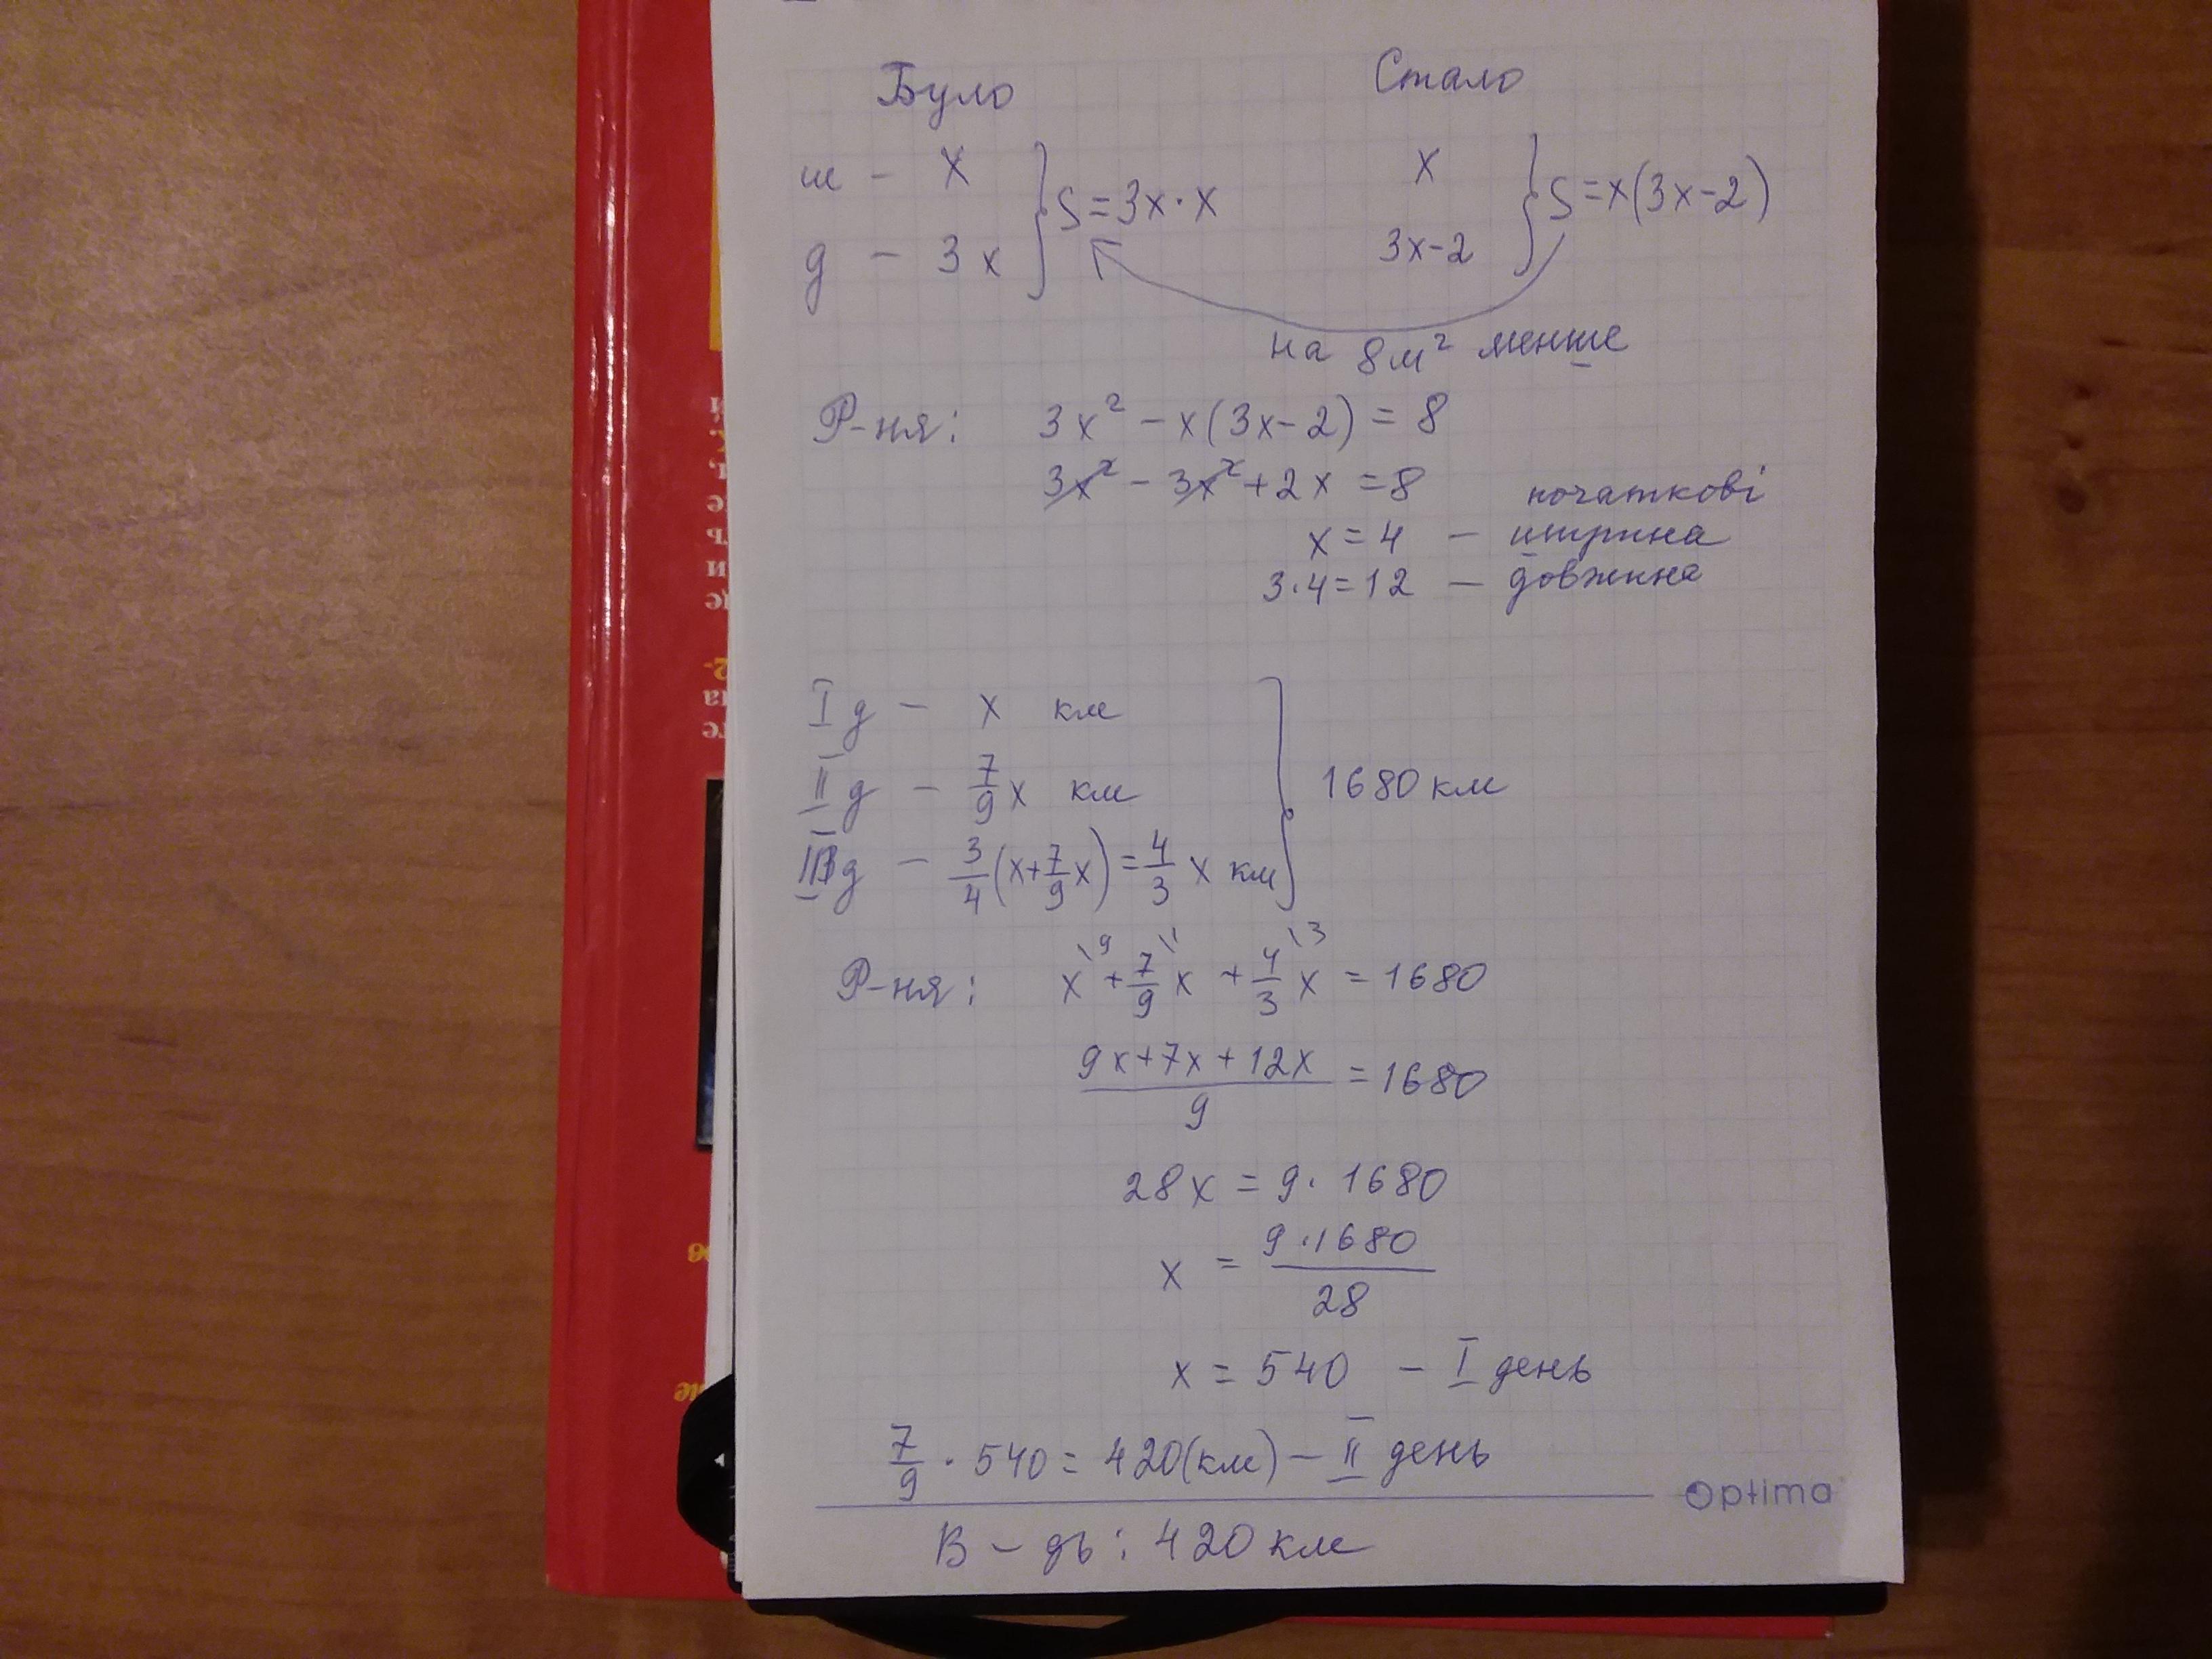 Було Стало
ш – x } S=3x·x x } S=x(3x-2)
д – 3x 3x-2
на 8м² менше
Р-ня: 3x² – x(3x-2) = 8
3x² – 3x² + 2x = 8
початкові
x = 4 – ширина
3·4=12 – довжина
I д – x км
II д – 7/9 x км } 1680 км
III д – 3/4 (x+7/9 x) = 4/3 x км
Р-ня: x\9 + 7/9\1 x + 4/3\3 x = 1680
(9x+7x+12x)/9 = 1680
28x = 9·1680
x = (9·1680)/28
x = 540 – I день
7/9 · 540 = 420(км) – II день
Optima
В-дь: 420 км